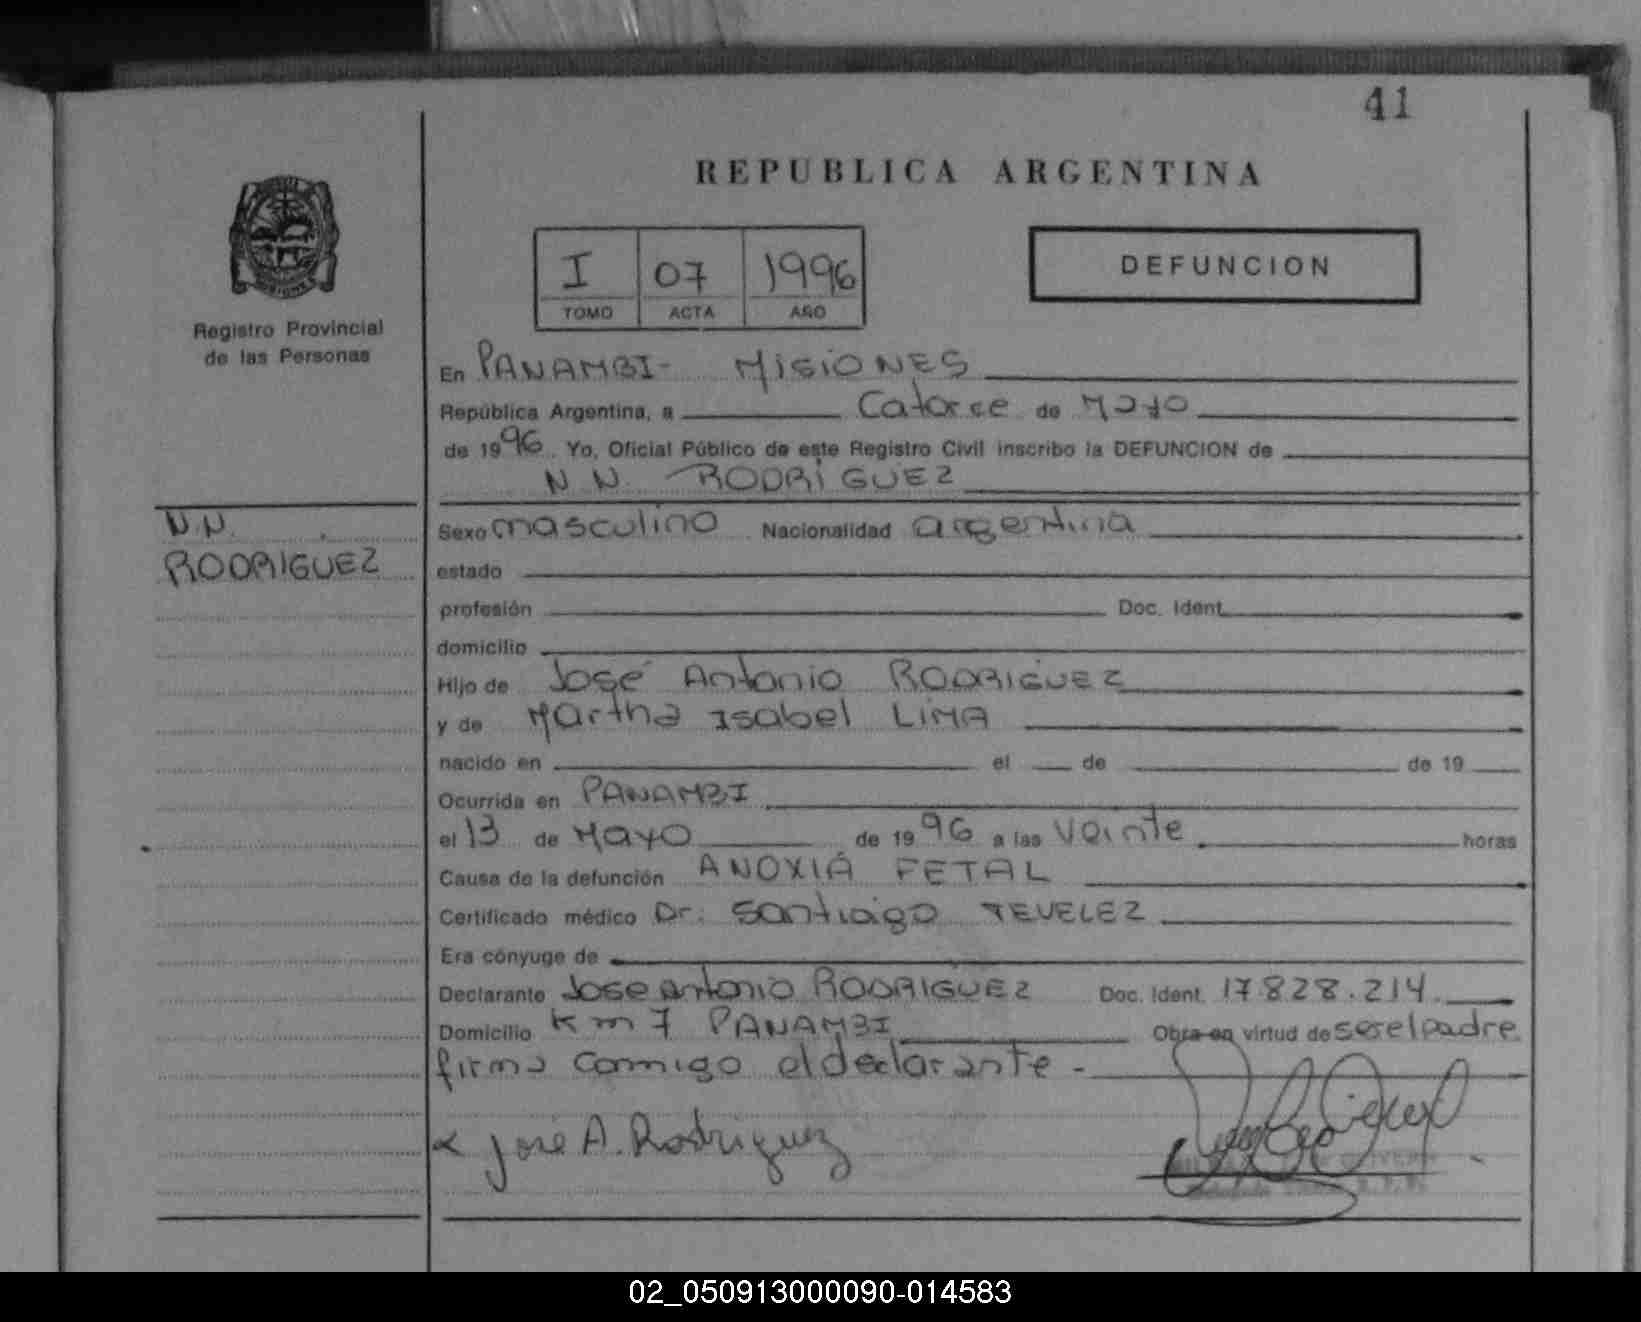 41
REPUBLICA ARGENTINA
MISIONES
Registro Provincial
de las Personas
I 07 1996
TOMO ACTA AÑO
DEFUNCION
En PANAMBI - MISIONES
República Argentina, a Catorce de Mayo
de 1996 Yo, Oficial Público de este Registro Civil inscribo la DEFUNCION de
N N. RODRIGUEZ
N.N.
RODRIGUEZ
Sexo masculino Nacionalidad argentina
estado
profesión Doc. Ident.
domicilio
Hijo de José Antonio RODRIGUEZ
y de Martha Isabel LIMA
nacido en el de de 19
Ocurrida en PANAMBI
el 13 de Mayo de 1996 a las Veinte horas
Causa de la defunción ANOXIA FETAL
Certificado médico Dr: Santiago TEVELEZ
Era cónyuge de
Declarante Jose antonio RODRIGUEZ Doc. Ident. 17.828.214.
Domicilio Km 7 PANAMBI Obra en virtud de ser el padre
firma conmigo el declarante -
José A. Rodriguez
02_050913000090-014583